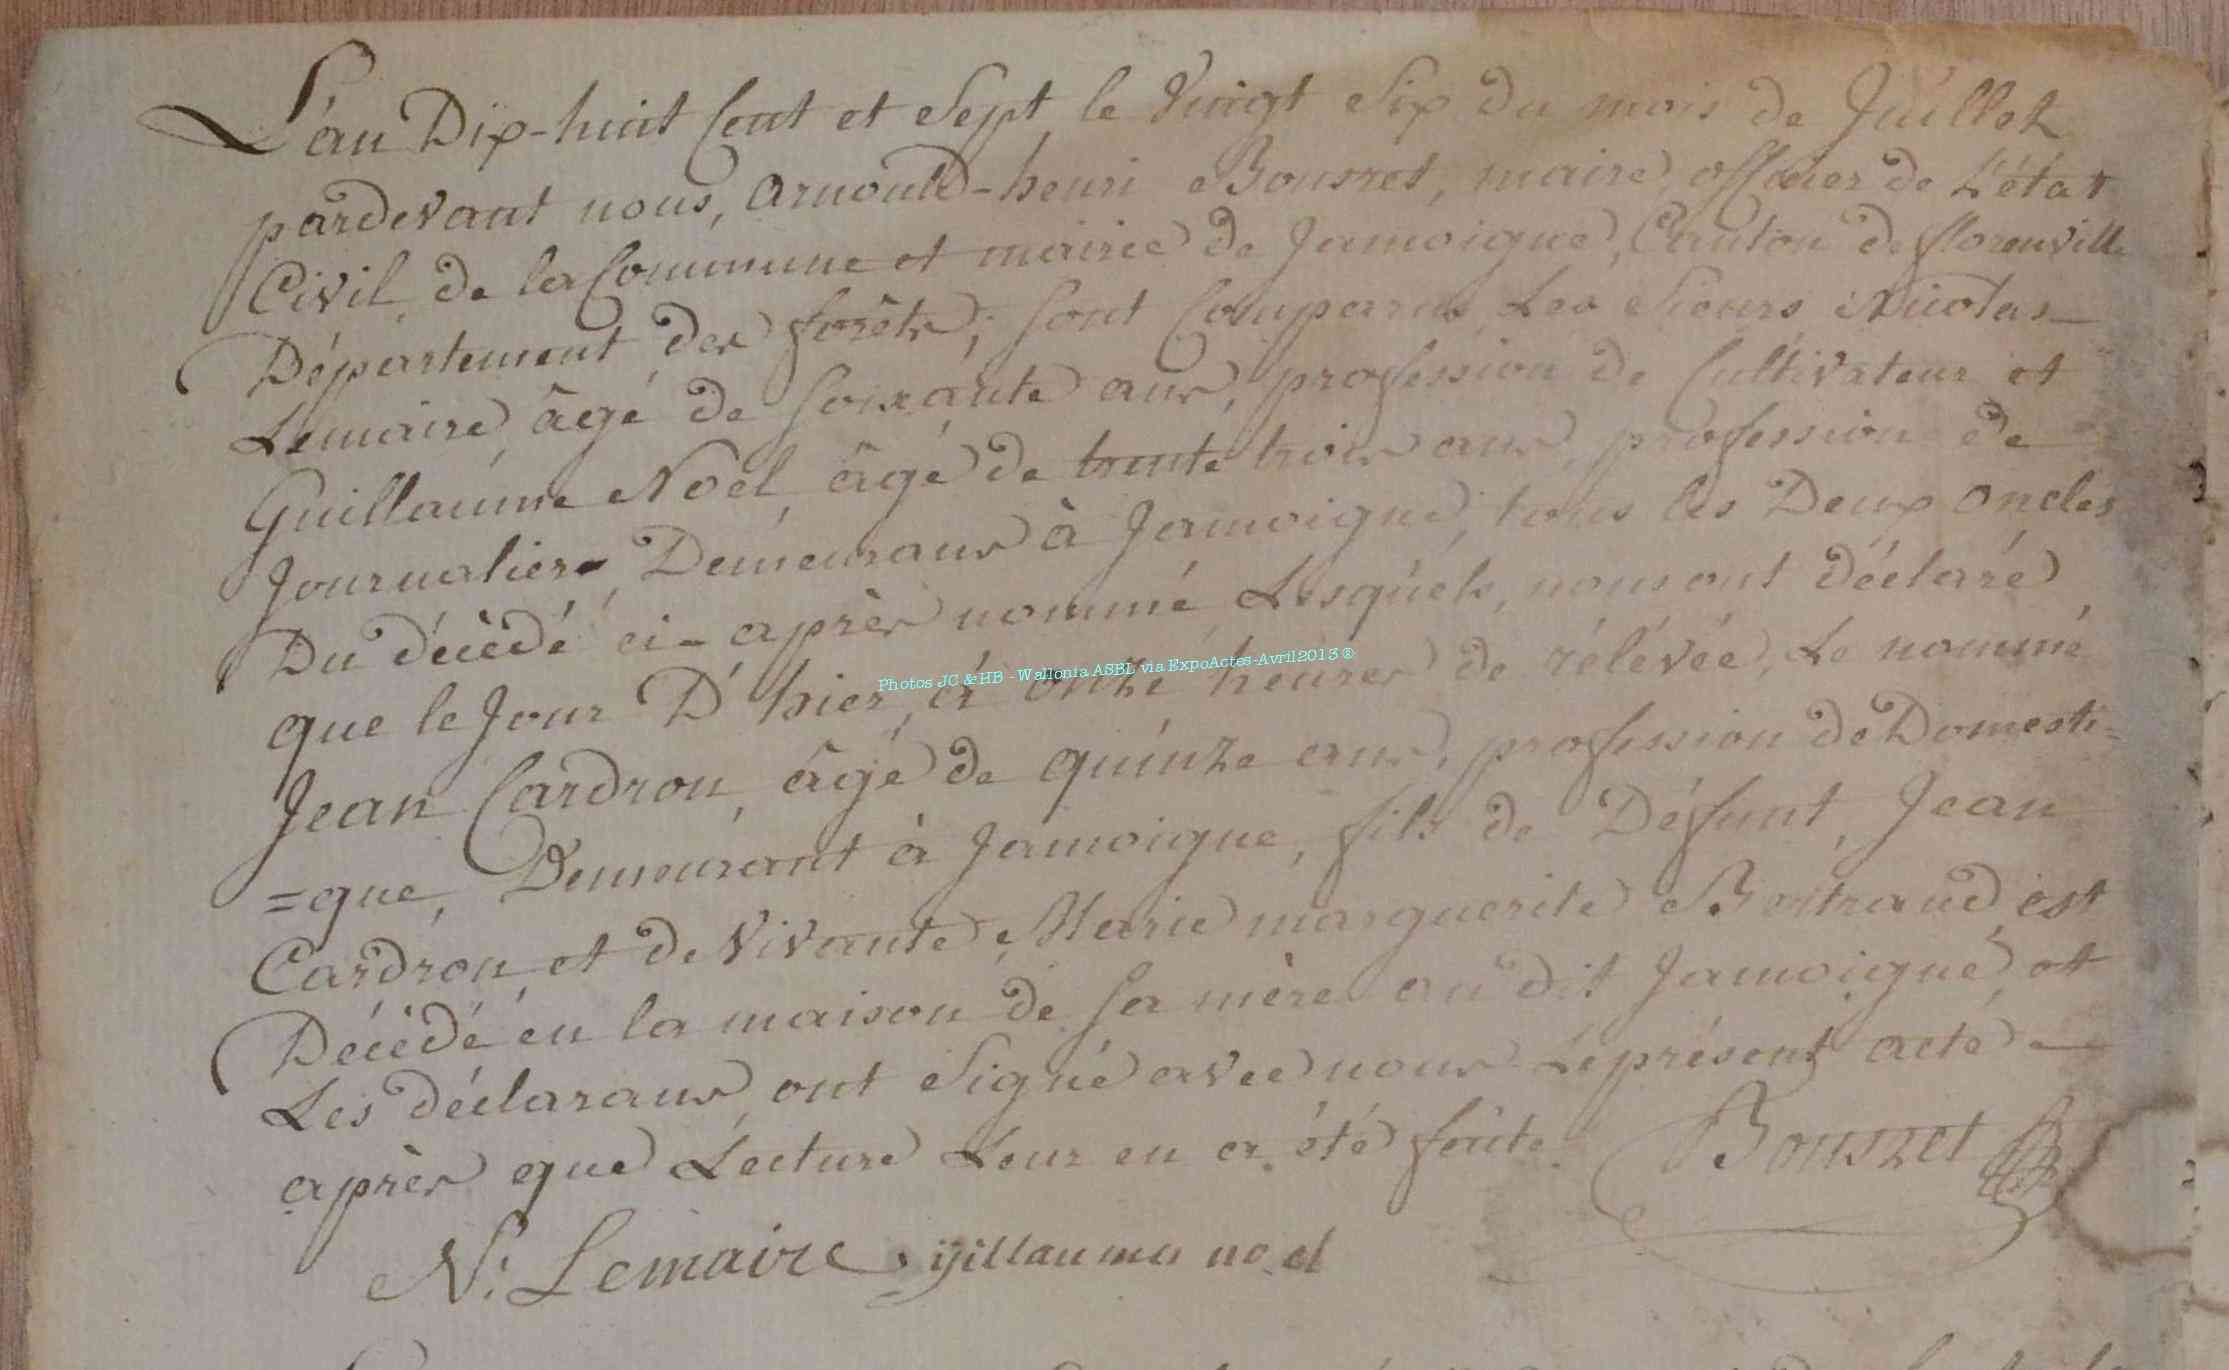 L'an Dix-huit Cent et Sept, le Vingt Six du mois de Juillet
pardevant nous, arnould-henri Bousret, maire, officier de L'état
Civil, de la Commune et mairie de Jamoigne, Canton de florenville
Département des forêts; sont Comparus Les Sieurs Nicolas
Lemaire, âgé de soixante ans, profession de Cultivateur et
Guillaume Noël, âgé de trente trois ans, profession de
Journalier, Demeurans à Jamoigne, tous les Deux oncles
Du décèdé ci-après nommé, Lesquéls, nous ont déclaré
que le Jour D'hier, à onze heures de rélévée, Le nommé
Photos JC & HB - Wallonia ASBL via ExpoActes-Avril2013 ®
Jean Cardron, âgé de quinze ans, profession de Domesti=
=que, Demeurant à Jamoigne, fils de Défunt, Jean
Cardron, et de Vivante, Marie marguerite Bertrand, est
Décèdé en la maison de sa mère au dit Jamoigne, et
Les déclarans, ont Signé avec nous Le présent acte
après que Lecture Leur en a été faite.
Bousret
N: Lemaire gillaume noel